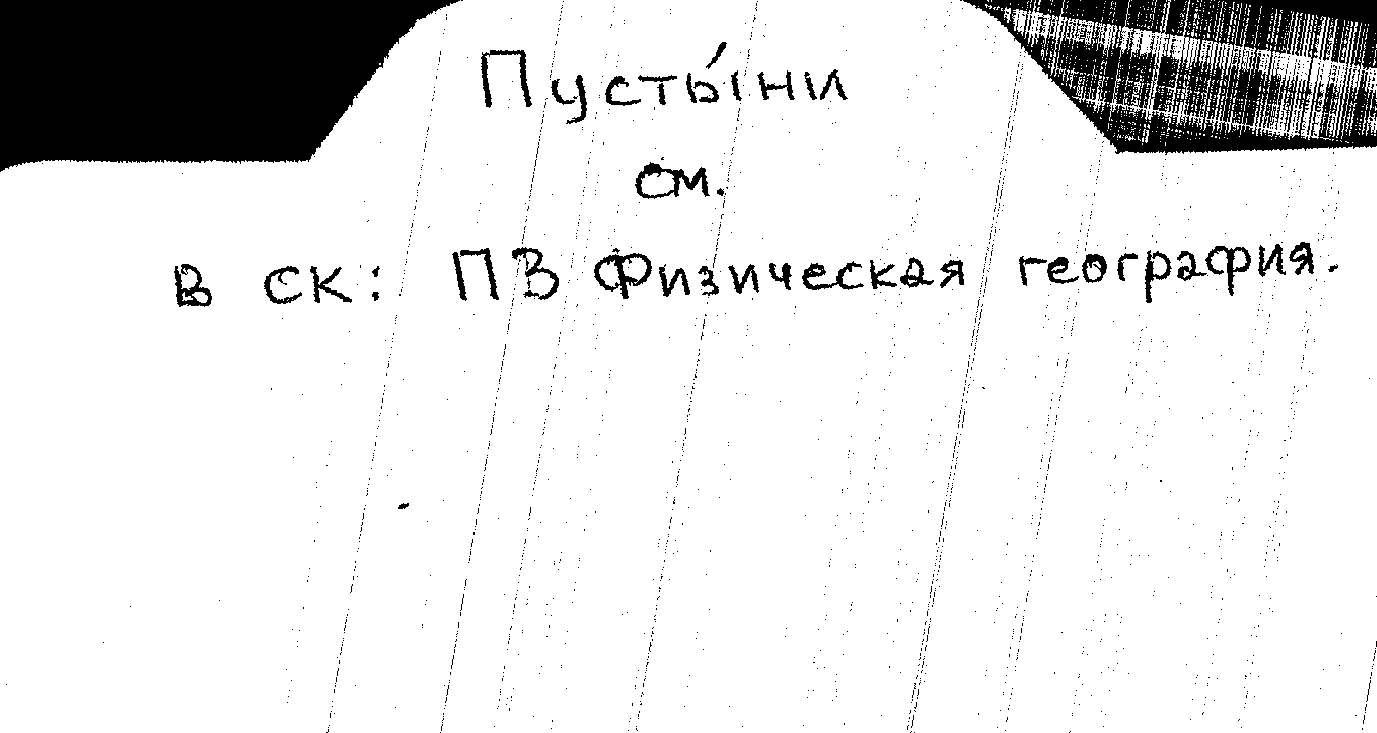 Пусты́ни
см.
в СК: ПВ Физическая география.